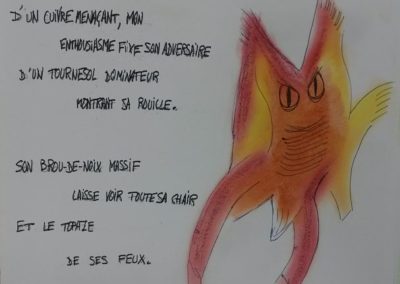 D'UN CUIVRE MENAÇANT, MON
ENTHOUSIASME FIXE SON ADVERSAIRE
D'UN TOURNESOL DOMINATEUR
MONTRANT SA ROUILLE.
SON BROU-DE-NOIX MASSIF
LAISSE VOIR TOUTE SA CHAIR
ET LE TOPAZE
DE SES FEUX.